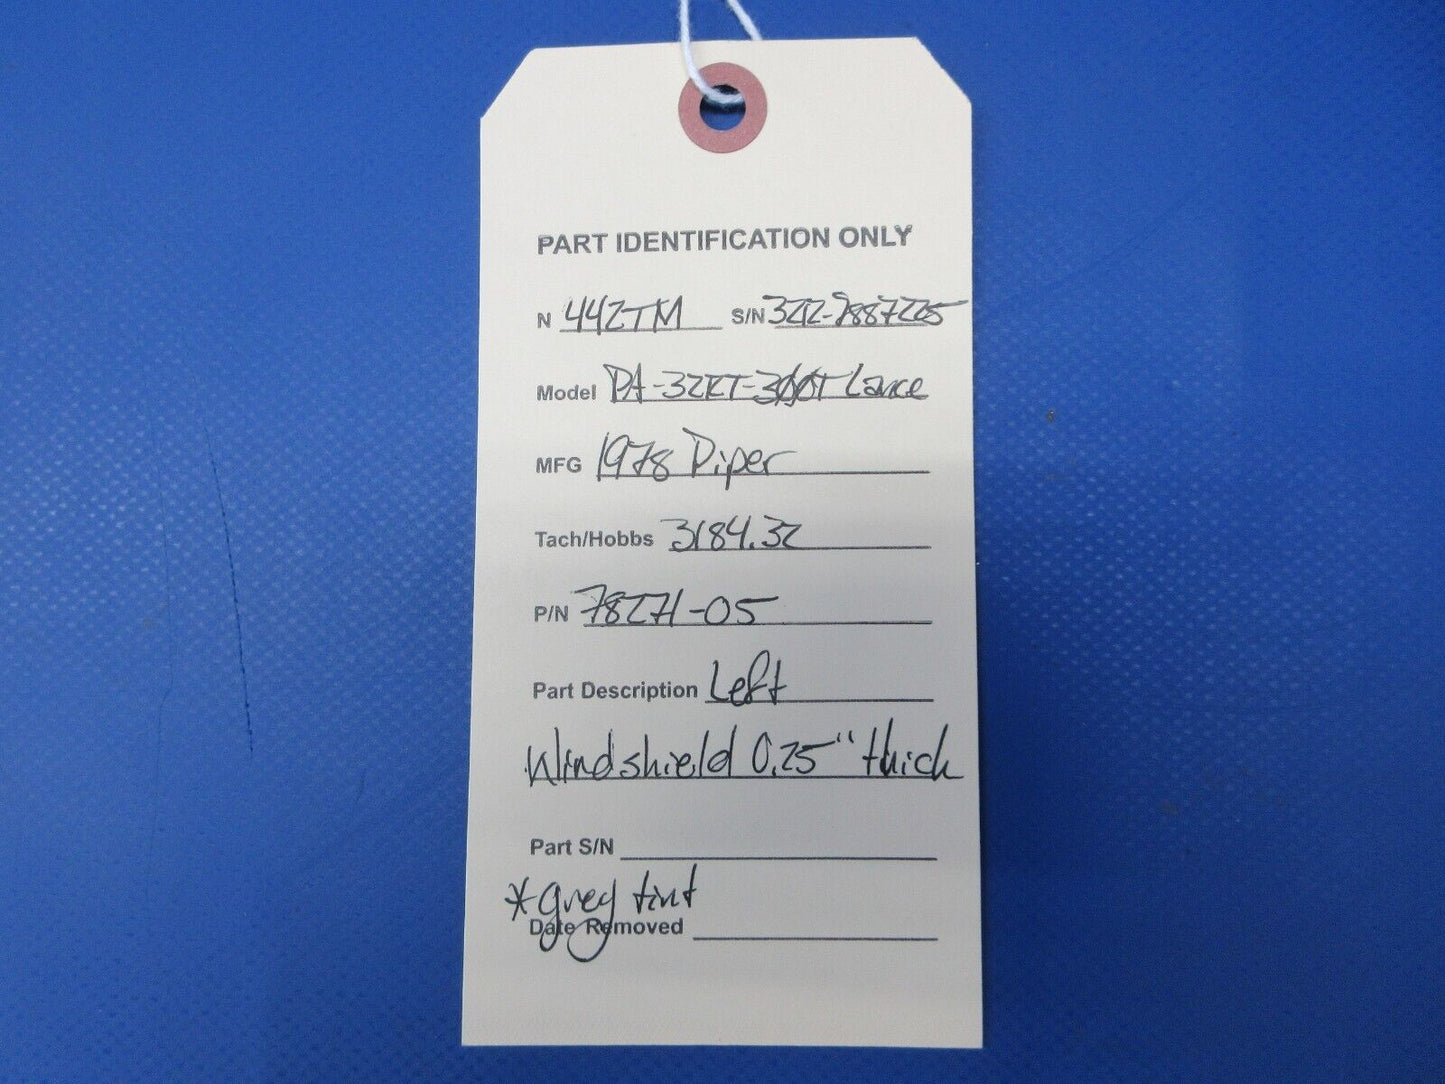 PART IDENTIFICATION ONLY
N 442TM S/N 32R-7887225
Model PA-32RT-300T Lance
MFG 1978 Piper
Tach/Hobbs 3184.32
P/N 78271-05
Part Description Left
Windshield 0.25" thick
Part S/N
*grey tint
Date Removed